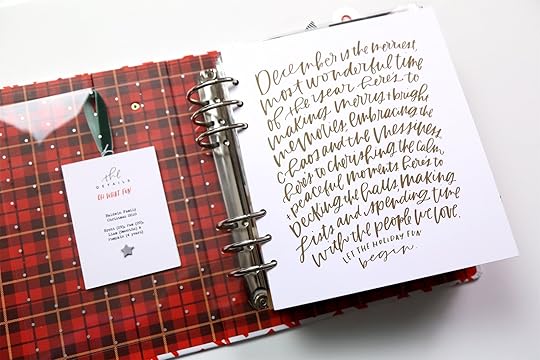 the
DETAILS
OH WHAT FUN
Christmas 2020
December is the merriest,
most wonderful time
of the year. here's to
making merry & bright
memories, embracing the
chaos and the messiness.
here's to cherishing the calm,
peaceful moments. here's to
decking the halls, making
lists and spending time
with the people we love.
LET THE HOLIDAY FUN
begin.